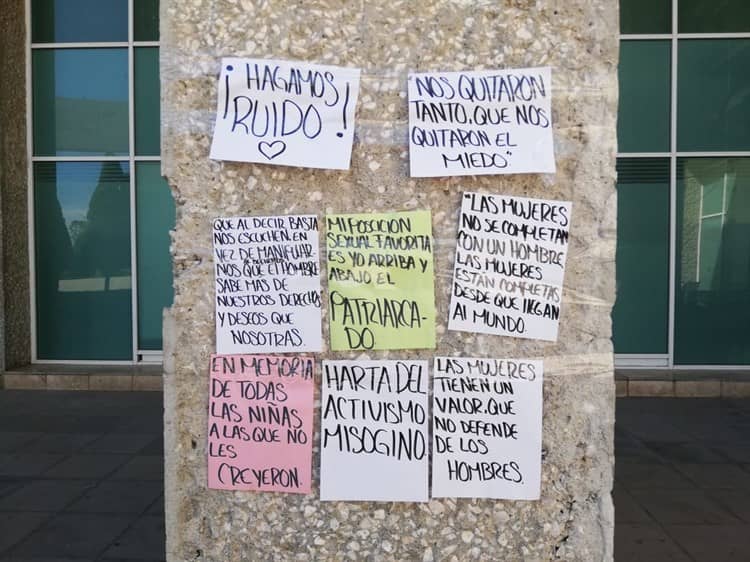 ¡HAGAMOS
RUIDO!
NOS QUITARON
TANTO, QUE NOS
QUITARON EL
MIEDO"
QUE AL DECIR BASTA
NOS ESCUCHEN. EN
VEZ DE MANIPULAR-
NOS QUE EL HOMBRE
SABE MAS DE
NUESTROS DERECHOS
Y DESEOS QUE
NOSOTRAS.
MI POSICION
SEXUAL FAVORITA
ES YO ARRIBA Y
ABAJO EL
PATRIARCA-
DO.
"LAS MUJERES
NO SE COMPLETAN
CON UN HOMBRE
LAS MUJERES
ESTÁN COMPLETAS
DESDE QUE LLEGAN
AL MUNDO.
EN MEMORIA
DE TODAS
LAS NIÑAS
A LAS QUE NO
LES
CREYERON.
HARTA DEL
ACTIVISMO
MISOGINO.
LAS MUJERES
TIENEN UN
VALOR. QUE
NO DEFENDE
DE LOS
HOMBRES.